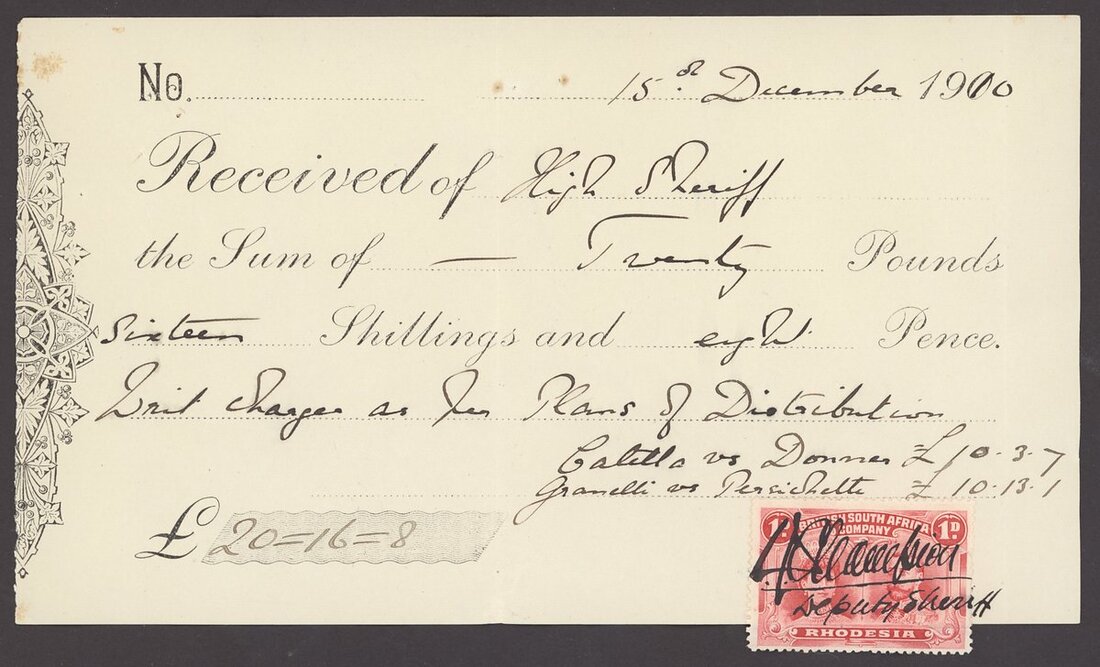 No. 15th December 1910
Received of High Sheriff
the Sum of — Twenty Pounds
Sixteen Shillings and eight Pence.
Writ charges as per Plans of Distribution
Calella vs Donner £10.3.7
Granelli vs Persichette £10.13.1
£ 20=16=8
1D BRITISH SOUTH AFRICA 1D
COMPANY
Deputy Sheriff
RHODESIA